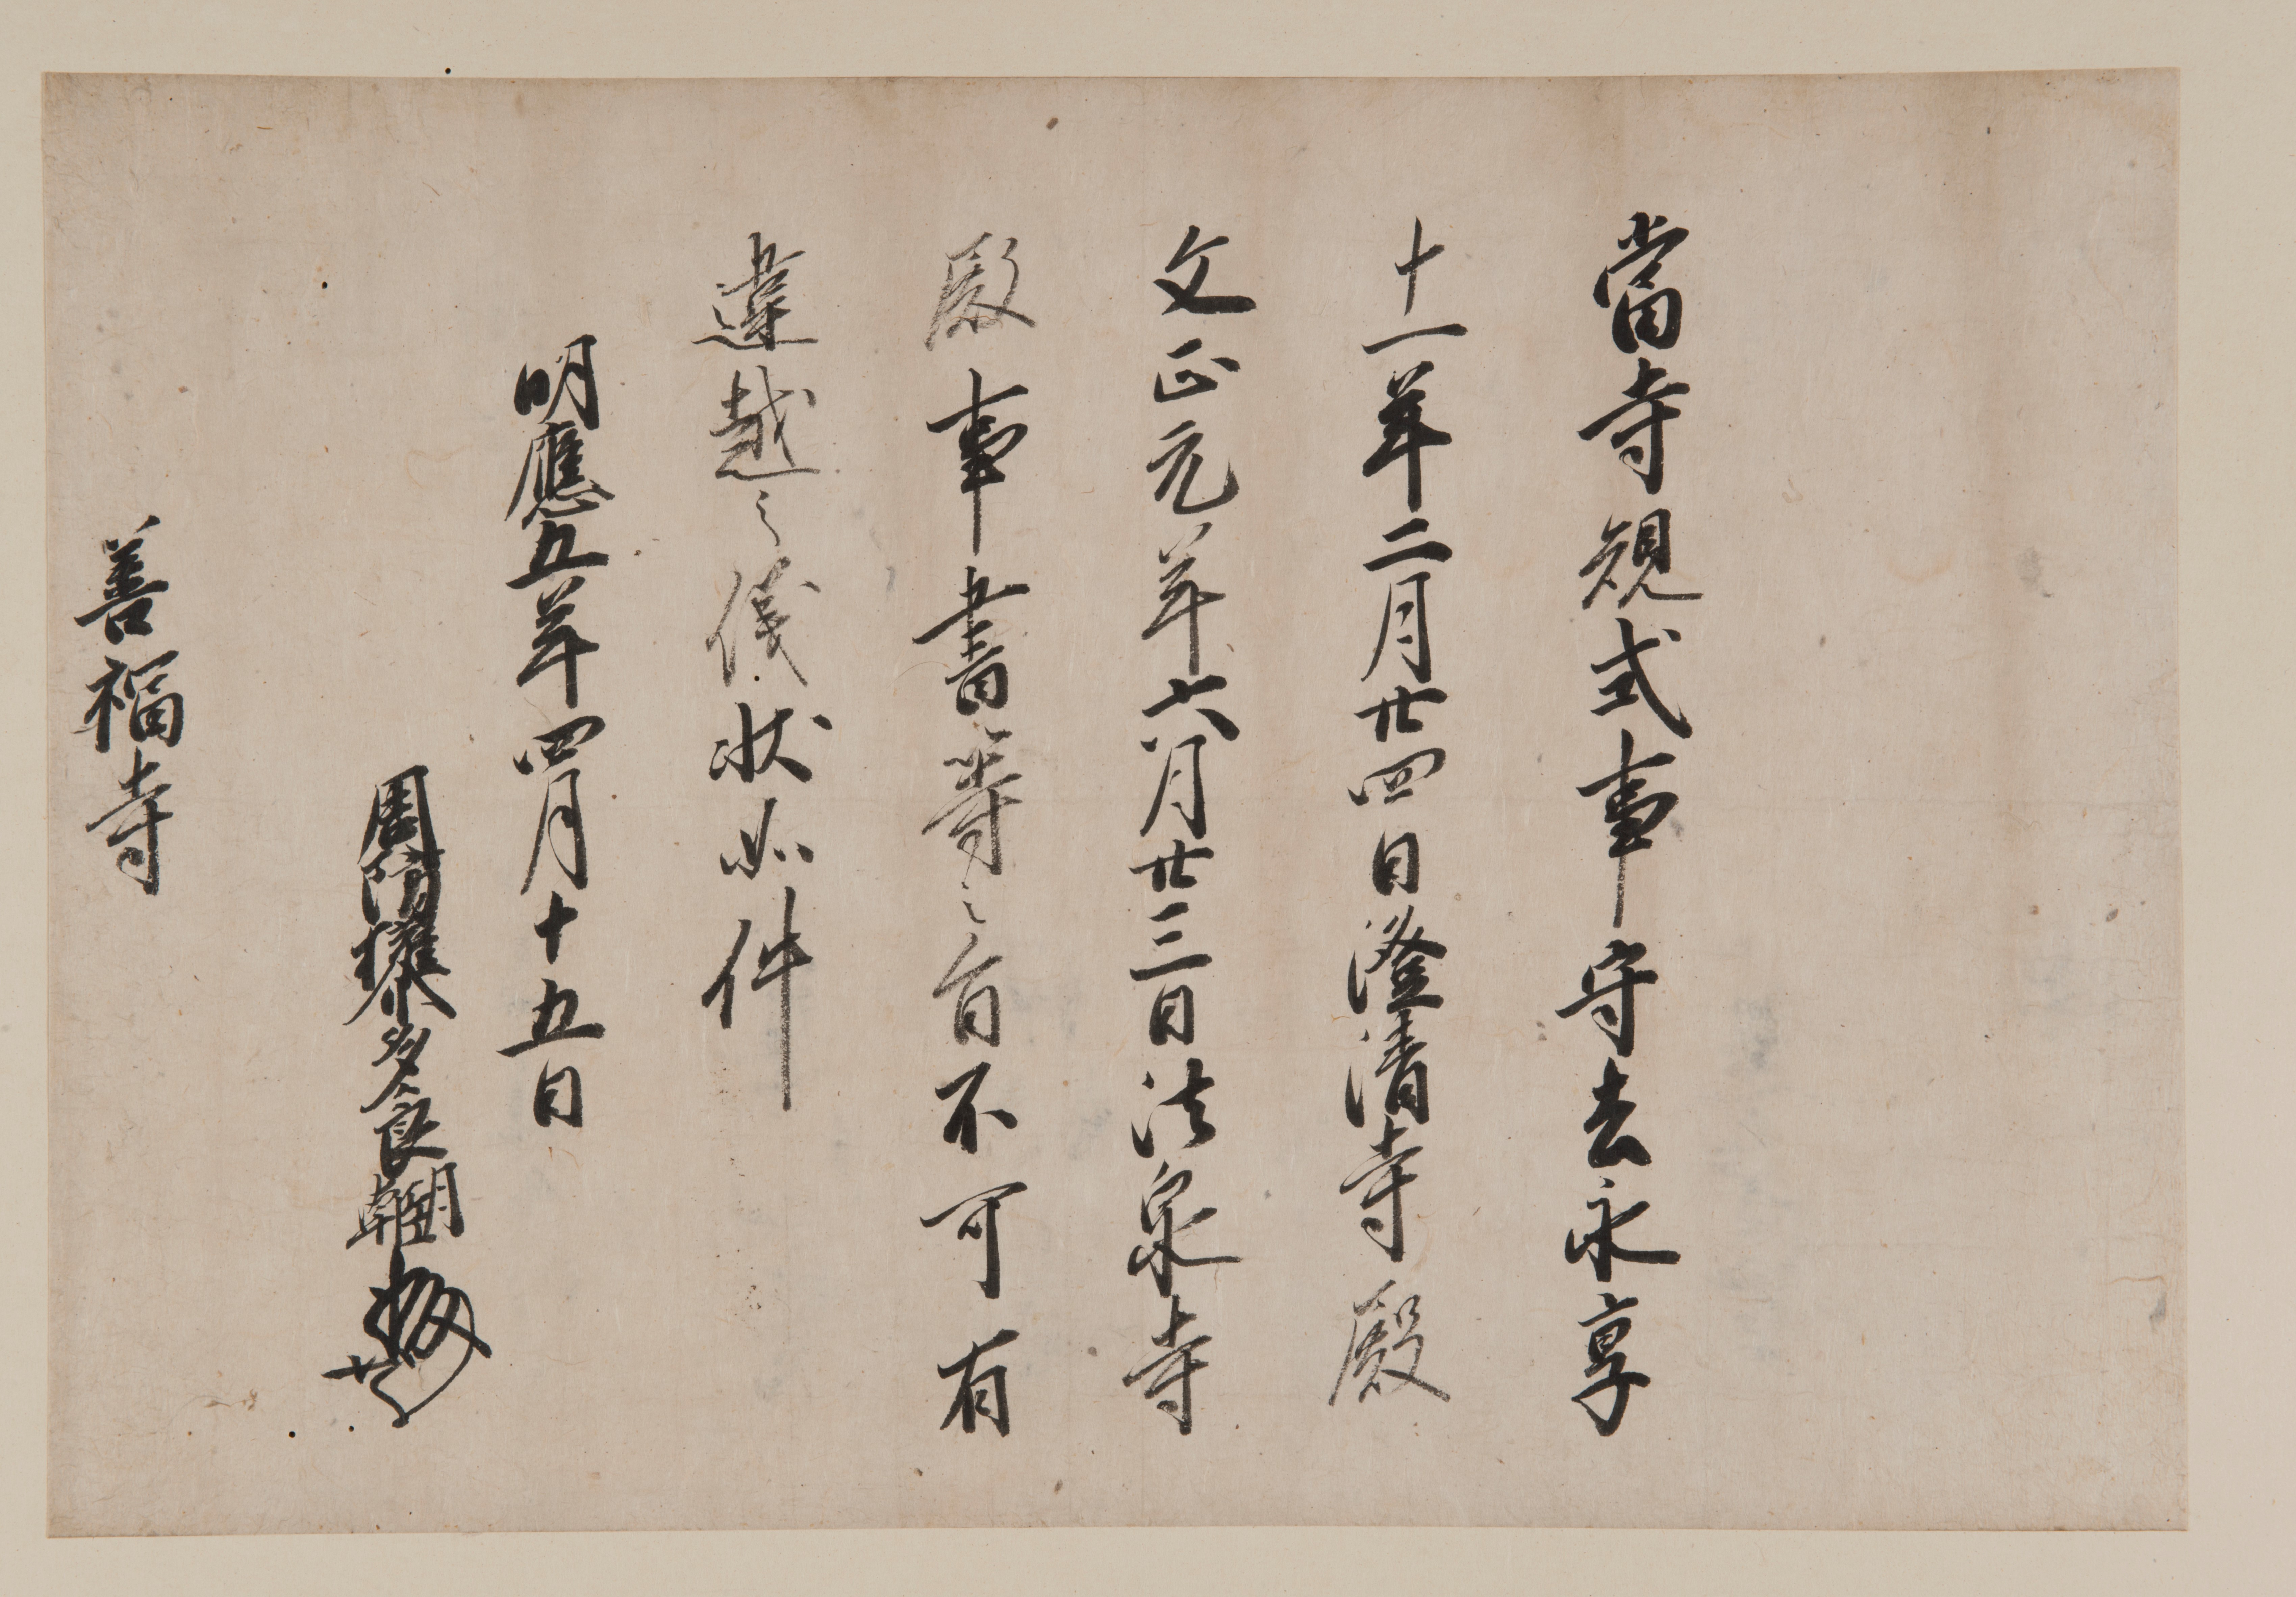 當寺規式事守去永享
十一年二月廿四日澄清寺殿
文正元年六月廿三日法泉寺
殿事書等之旨不可有
違越之儀状如件
明應五年四月十五日
周防権介多々良朝臣
善福寺